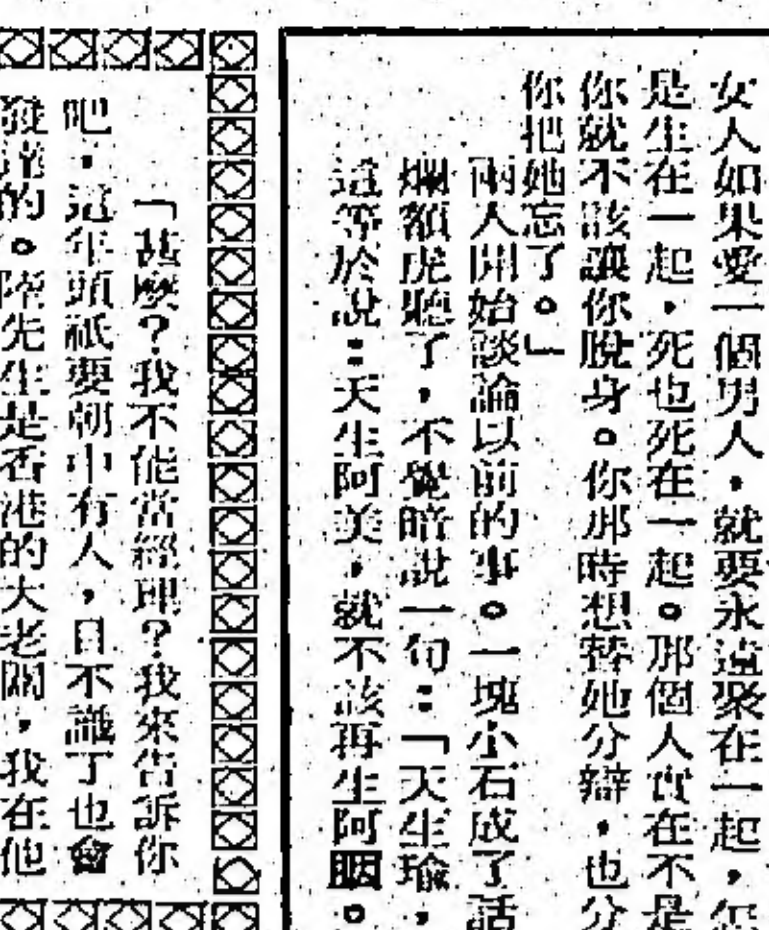 女人如果愛一個男人，就要永遠聚在一起，怎
是生在一起，死也死在一起。那個人實在不是
你就不該讓你脫身。你那時想替她分辯，也分
你把她忘了。」
兩人開始談論以前的事。一塊小石成了話
爛額虎聽了，不覺暗說一句：「天生瑜，
這等於說：天生阿美，就不該再生阿胭。
「甚麼？我不能當經理？我來告訴你
吧，這年頭祇要朝中有人，目不識丁也會
發達的。陸先生是香港的大老闆，我在他